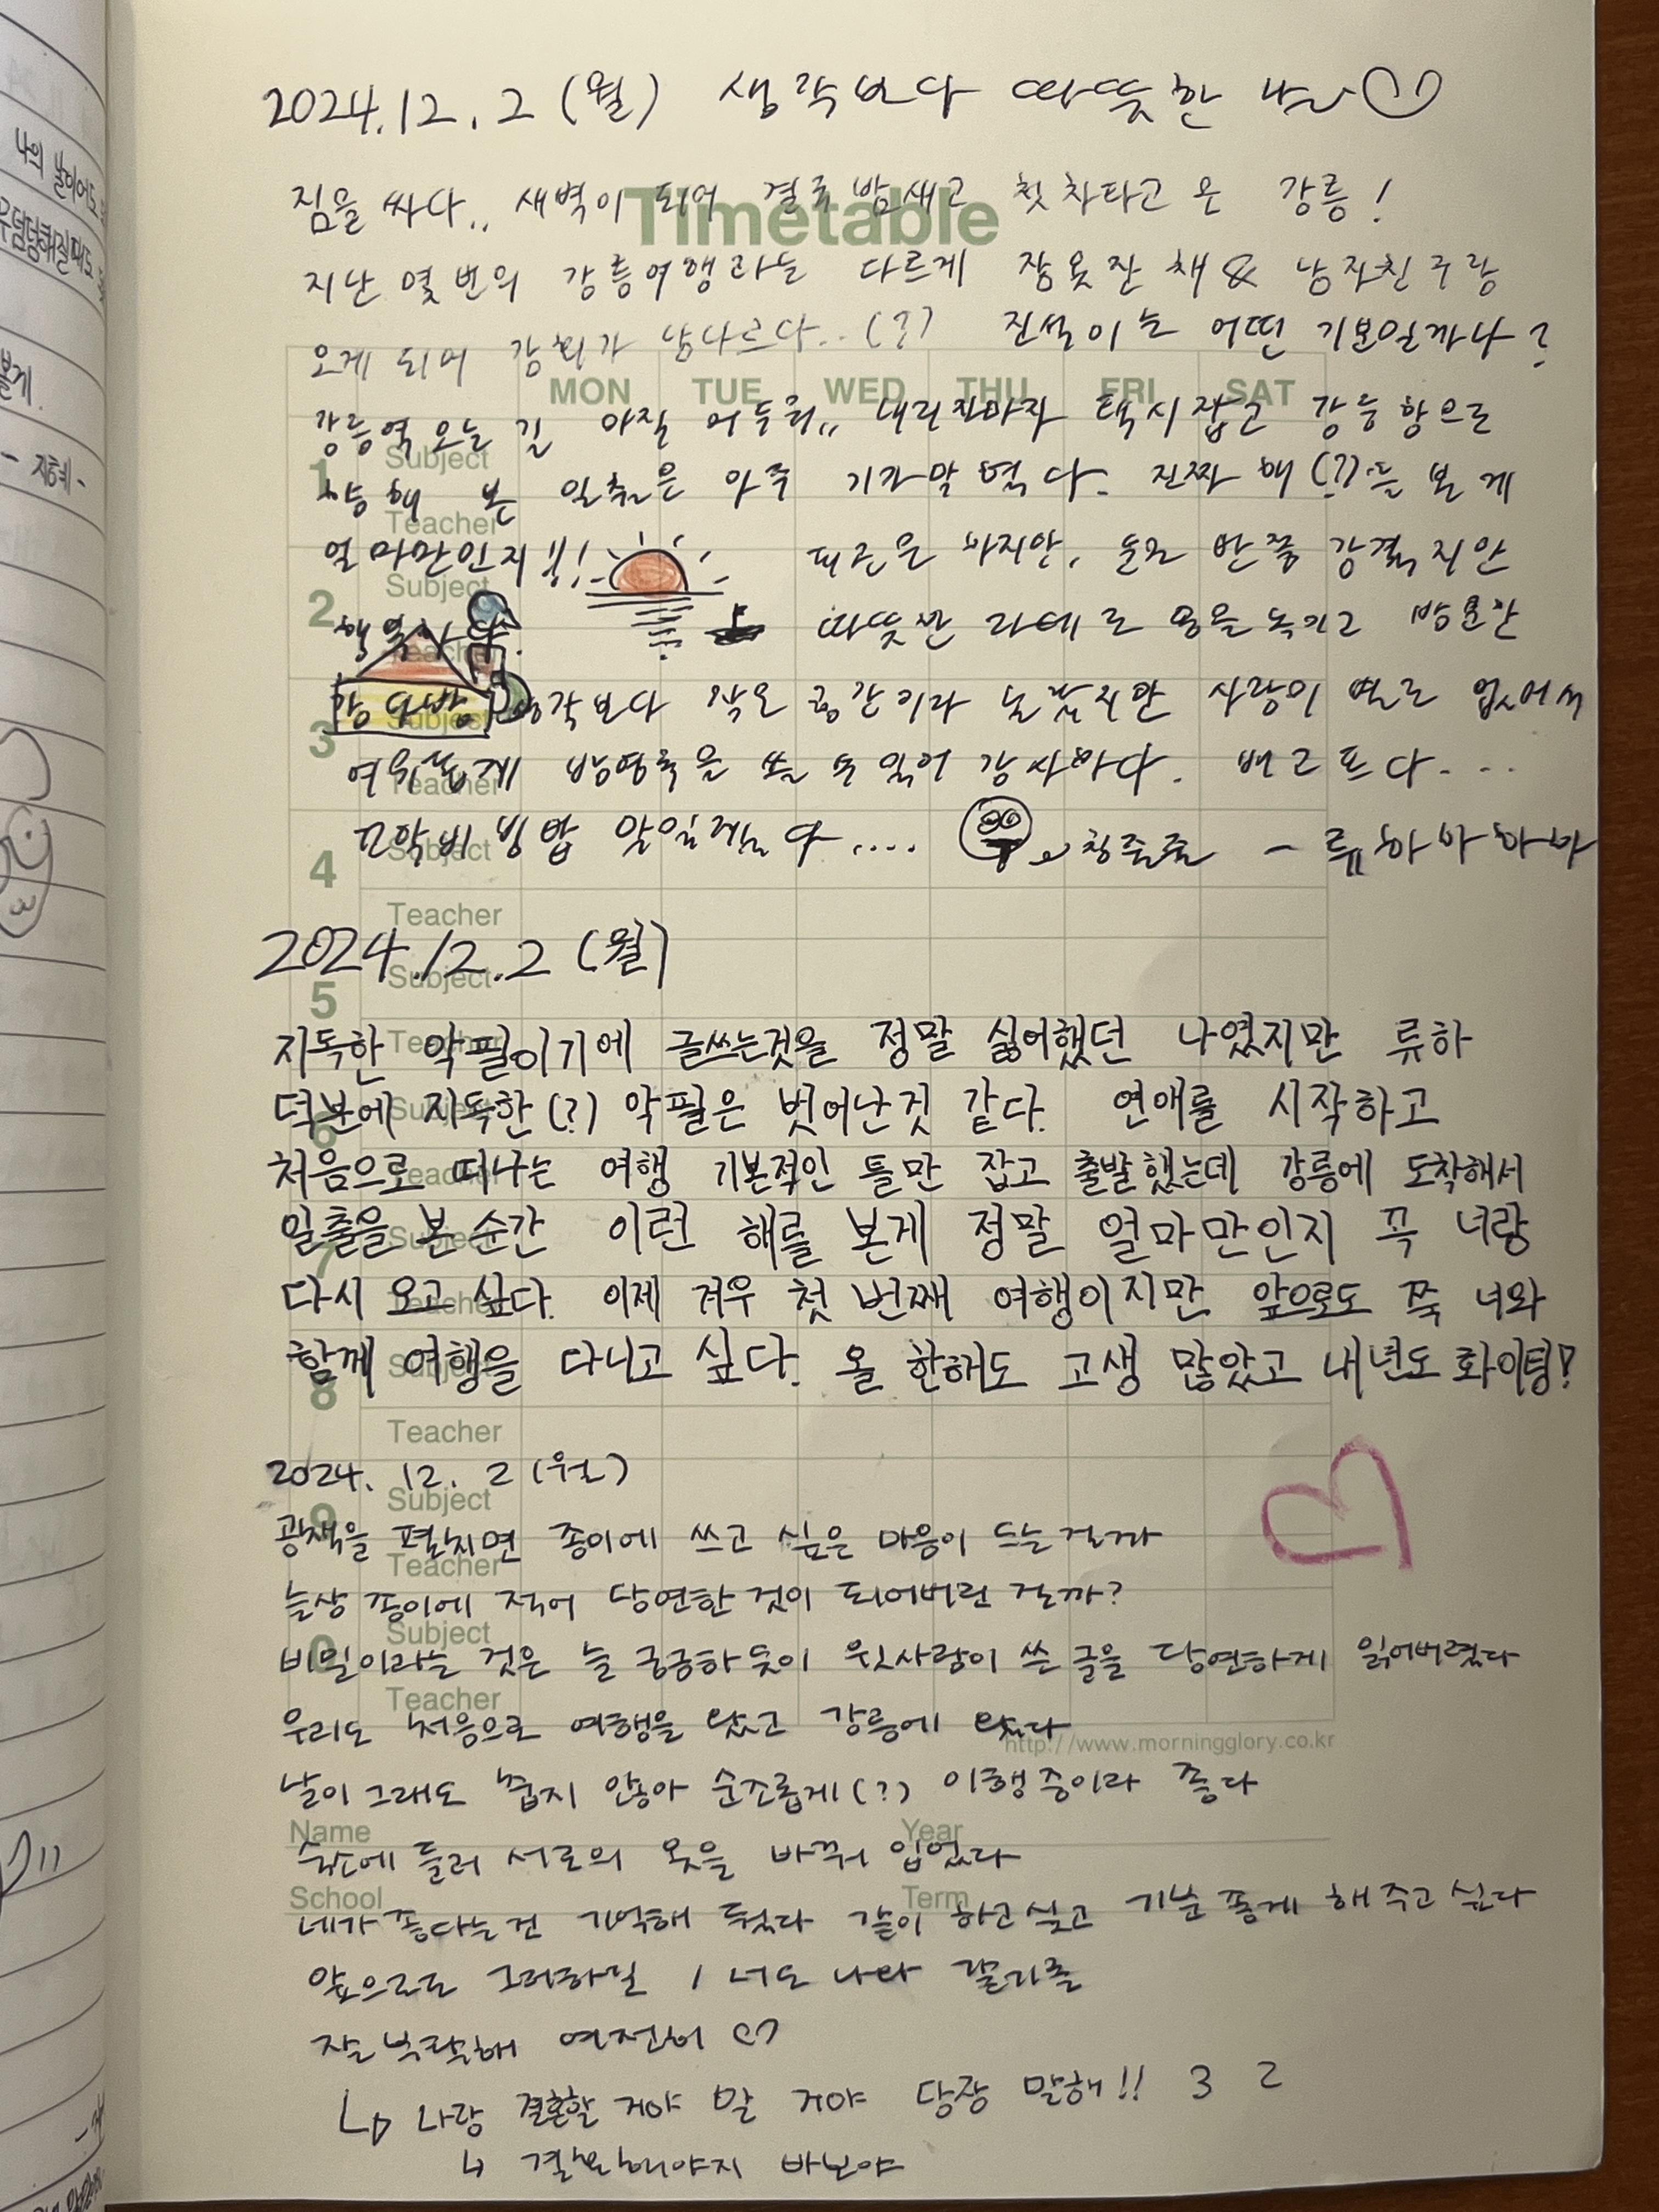 2024.12.2 (월) 생각보다 따뜻한 날♡
짐을 싸다.. 새벽이 되어 결국 밤새고 첫차타고 온 강릉!
Timetable
지난 몇 번의 강릉여행과는 다르게 잠 못잔 채 & 남자친구랑
오게 되어 감회가 남다르다..(?) 진설이는 어떤 기분일까나?
MON TUE WED THU FRI SAT
강릉역 오는 길 아직 어두워,, 내리자마자 택시잡고 강릉항으로
향해 본 일출은 아주 기가막혔다. 진짜 해(?)를 본 게
얼마만인지!!! 피곤은 하지만, 눈도 반쯤 감겼지만
행복하다. 따뜻한 라떼로 몸을 녹이고 방문한
강다방 생각보다 작은 공간이라 놀랐지만 사람이 별로 없어서
여유롭게 방명록을 쓸 수 있어 감사하다. 배고프다....
꼬막비빔밥 맛있겠는다.... 침줄줄 - 류하아하하
2024.12.2 (월)
지독한 악필이기에 글쓰는것을 정말 싫어했던 나였지만 류하
덕분에 지독한(?) 악필은 벗어난것 같다. 연애를 시작하고
처음으로 떠나는 여행 기본적인 틀만 잡고 출발했는데 강릉에 도착해서
일출을 본 순간 이런 해를 본게 정말 얼마만인지 꼭 너랑
다시 오고 싶다. 이제 겨우 첫 번째 여행이지만 앞으로도 쭉 너와
함께 여행을 다니고 싶다. 올 한해도 고생 많았고 내년도 화이팅!
2024. 12. 2 (월)
공책을 펼치면 종이에 쓰고 싶은 마음이 드는걸까
늘상 종이에 적어 당연한 것이 되어버린 걸까?
비밀이라는 것은 늘 궁금하듯이 윗사람이 쓴 글을 당연하게 읽어버렸다
우리도 처음으로 여행을 왔고 강릉에 왔다
날이 그래도 춥지 않아 순조롭게(?) 이행중이라 좋다
에 들러 서로의 옷을 바꿔 입었다
네가 좋다는건 기억해 뒀다 같이 하고싶고 기분 좋게 해주고싶다
앞으로도 그러하길 / 너도 나와
잘 부탁해 여전히 ♡
↳ 나랑 결혼할 거야 말 거야 당장 말해!! 3 2
↳ 결혼해야지 바보야
1 2 3 4 5 6 7 8 9 0
Subject
Teacher
http://www.morningglory.co.kr
Name Year
School Term
나의
볼게.
- 지혜 -